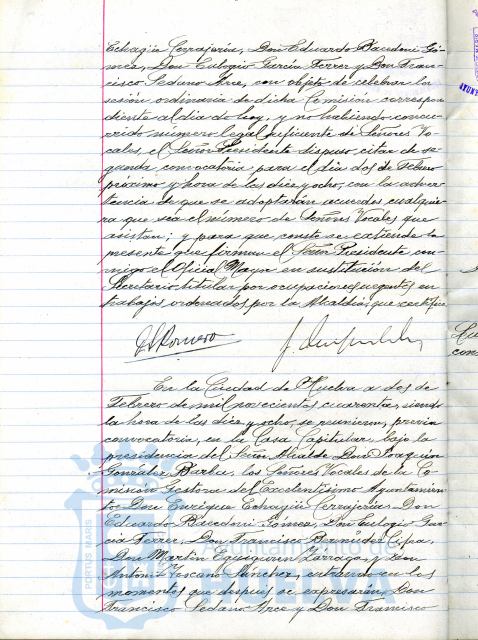 Echagüe Cerrajería, Don Eduardo Bacedoni Gó-
mez, Don Eulogio García Ferrer y Don Fran-
cisco Sedano Arce, con objeto de celebrar la
sesión ordinaria de dicha Comisión correspon-
diente al día de hoy, y no habiendo concu-
rrido número legal suficiente de Señores Vo-
cales, el Señor Presidente dispuso citar de se-
gunda convocatoria para el día dos de Febrero
próximo y hora de las diez y ocho, con la adver-
tencia de que se adoptarán acuerdos cualquie-
ra que sea el número de Señores Vocales que
asistan; y para que conste se extiende la
presente que firman el Señor Presidente con-
migo el Oficial Mayor en sustitución del
Secretario titular por ocupaciones urgentes en
trabajos ordenados por la Alcaldía, que certifico
Romero
En la Ciudad de Huelva a dos de
Febrero de mil novecientos cuarenta, siendo
la hora de las diez y ocho, se reunieron, previa
convocatoria, en la Casa Capitular, bajo la
presidencia del Señor Alcalde Don Joaquín
González Barba, los Señores Vocales de la Co-
misión Gestora del Excelentísimo Ayuntamien-
to Don Enrique Echagüe Cerrajerías, Don
Eduardo Bacedoni Gómez, Don Eulogio Gar-
cía Ferrer, Don Francisco Bernárdez
Don Martín Eyzaguirre Zarraga, y Don
Antonio Toscano Sánchez, entrando en los
momentos que después se expresarán, Don
Francisco Sedano Arce y Don Francisco
PORTUS MARIS
Ayuntamiento de